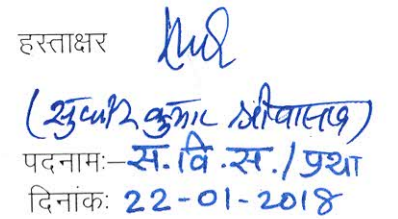 हस्ताक्षर
(सुधीर कुमार श्रीवास्तव)
पदनामः–स.वि.स./प्रथा
दिनांकः 22-01-2018